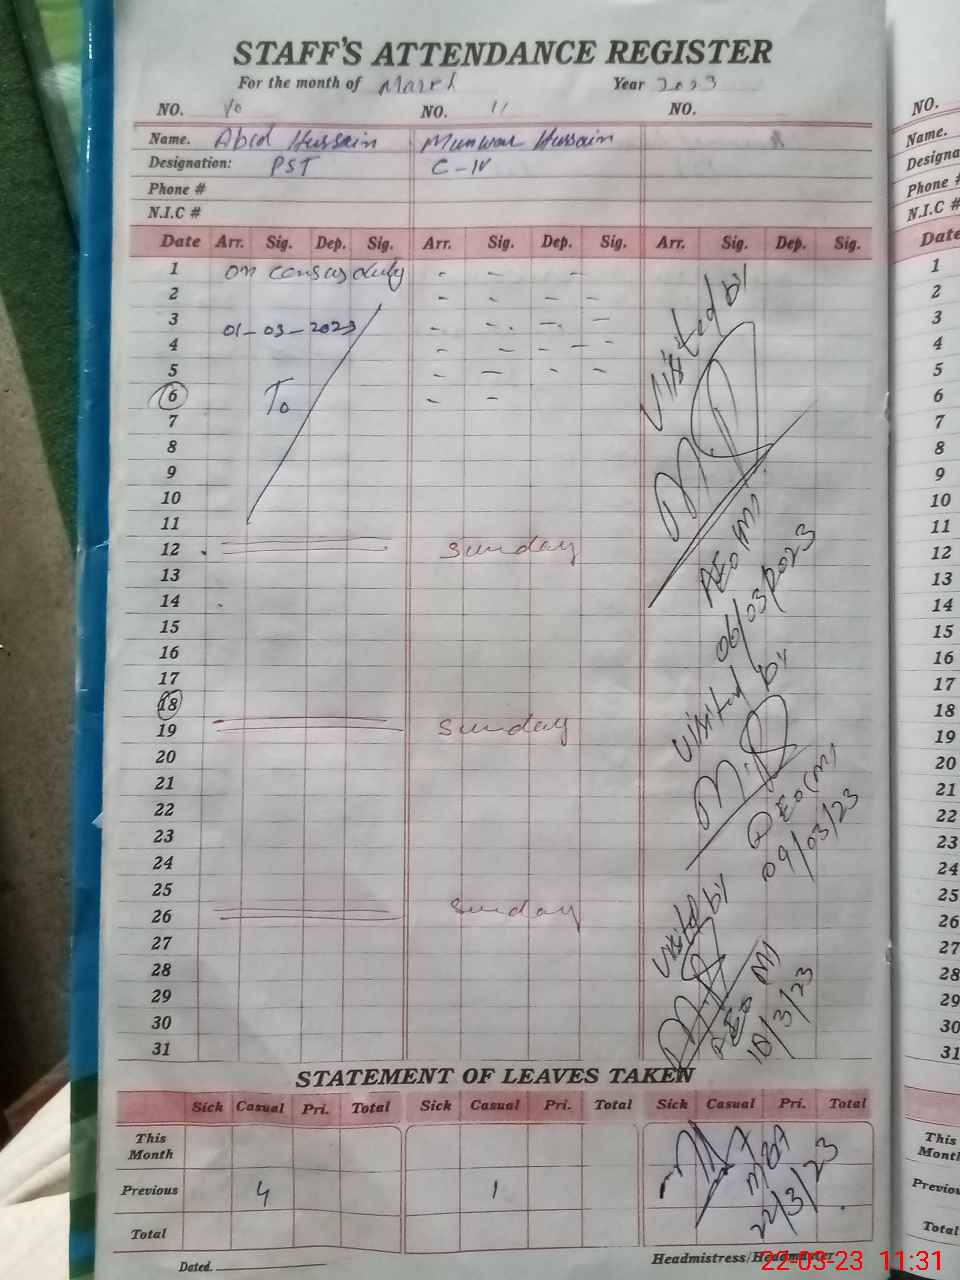 STAFF'S ATTENDANCE REGISTER
For the month of March Year 2023
NO. 10 NO. 11 NO.
Name. Abid Hussain Munwar Hussain
Designation: PST C-IV
Phone #
N.I.C #
Date Arr. Sig. Dep. Sig. Arr. Sig. Dep. Sig. Arr. Sig. Dep. Sig.
1 on census duty - - -
2 - - - -
3 01-03-2023 - - - -
4 - - - -
5 - - - -
6 To - -
7
8
9
10
11
12 Sunday
13
14
15
16
17
18
19 Sunday
20
21
22
23
24
25
26 Sunday
27
28
29
30
31
Visited by
AEO (M)
06/03/2023
Visited by
AEO (M)
09/03/23
Visited by
AEO M
18/3/23
STATEMENT OF LEAVES TAKEN
Sick Casual Pri. Total Sick Casual Pri. Total Sick Casual Pri. Total
This Month
Previous 4 1
Total
22/3/23
Dated. Headmistress/Headmaster
22-03-23 11:31
NO.
Name.
Designa
Phone #
N.I.C #
Date
1
2
3
4
5
6
7
8
9
10
11
12
13
14
15
16
17
18
19
20
21
22
23
24
25
26
27
28
29
30
31
This
Month
Previou
Total